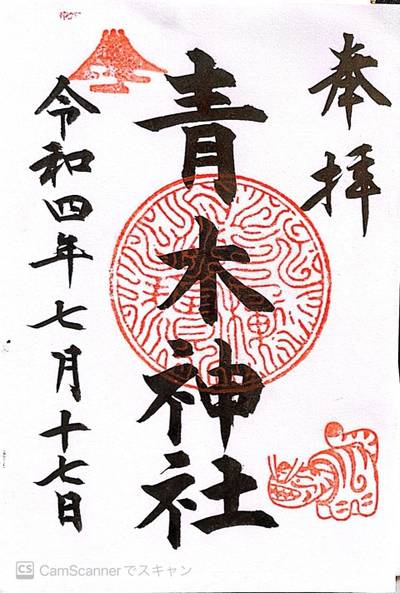 奉拝
青木神社
令和四年七月十七日
CS CamScannerでスキャン